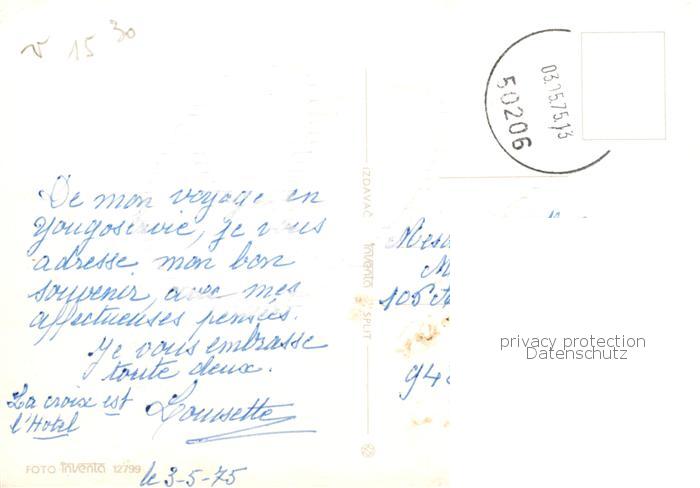 v 15 30
03.05.75.13
50206
De mon voyage en
Yougoslavie, je vous
adresse mon bon
souvenir, avec mes
affectueuses pensées.
Je vous embrasse
toute deux.
La croix est
l'Hotel
Lousette
le 3-5-75
FOTO inventa 12799
IZDAVAČ inventa SPLIT
Mesd
M
105
94
privacy protection
Datenschutz